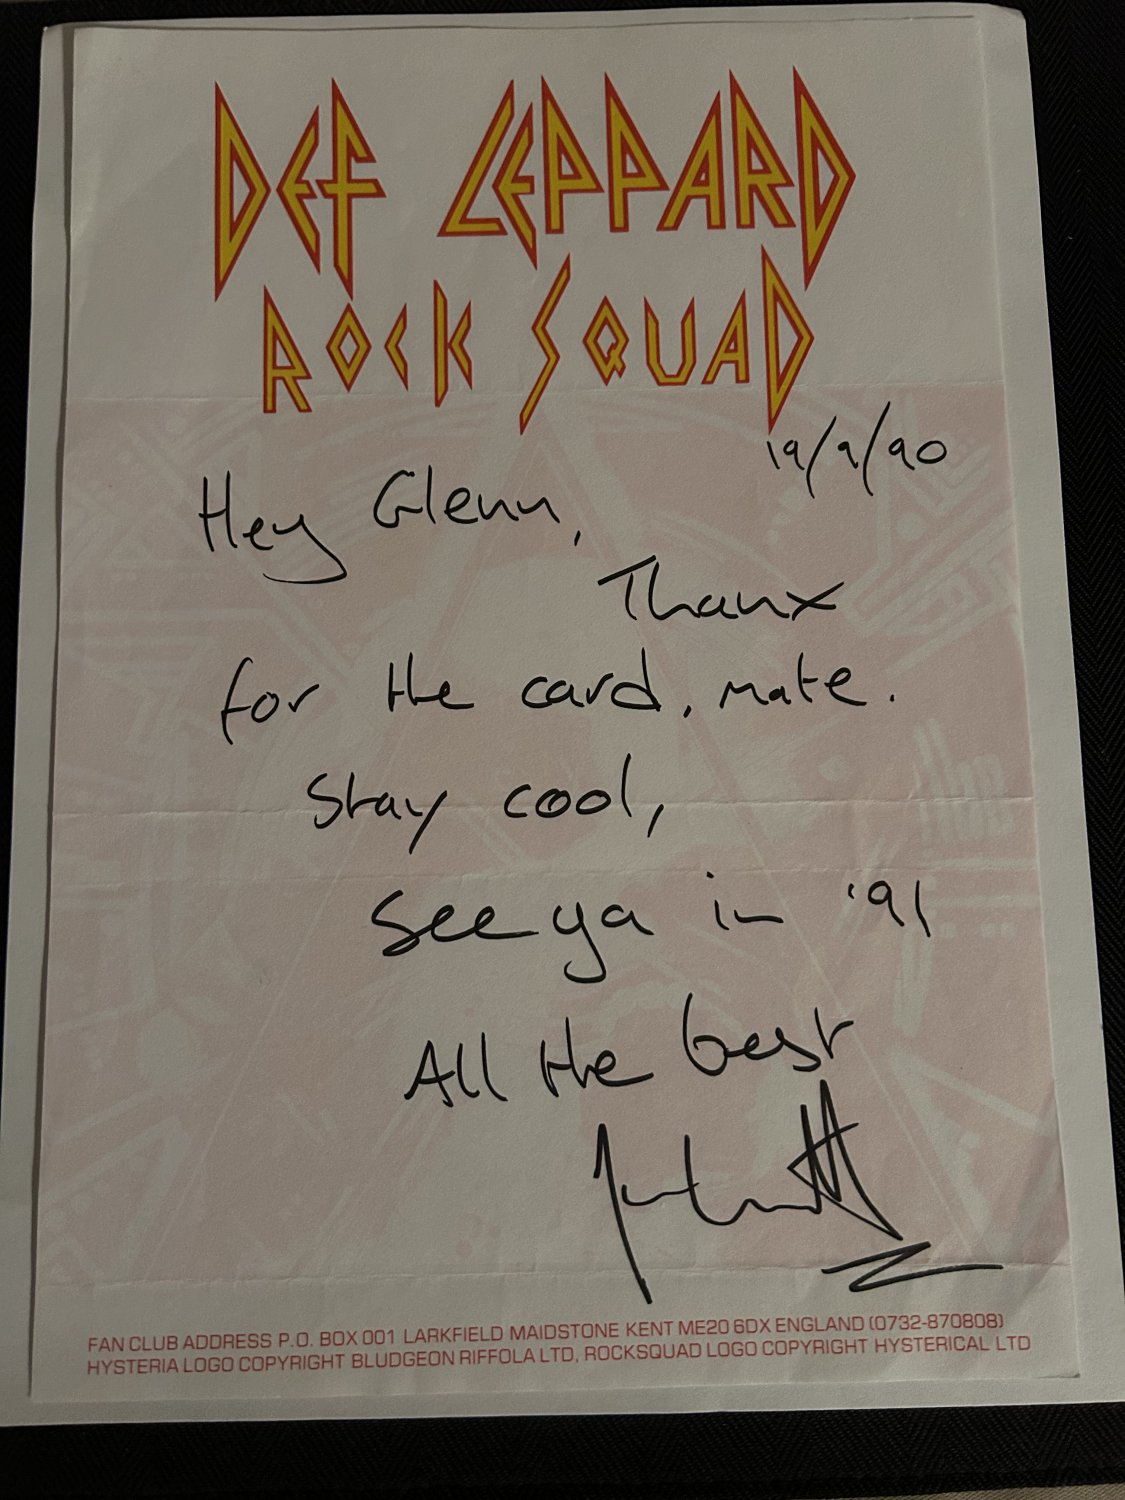 DEF LEPPARD
ROCK SQUAD
19/9/90
Hey Glenn,
Thanx
for the card, mate.
Stay cool,
See ya in '91
All the best
FAN CLUB ADDRESS P.O. BOX 001 LARKFIELD MAIDSTONE KENT ME20 6DX ENGLAND (0732-870808)
HYSTERIA LOGO COPYRIGHT BLUDGEON RIFFOLA LTD, ROCKSQUAD LOGO COPYRIGHT HYSTERICAL LTD